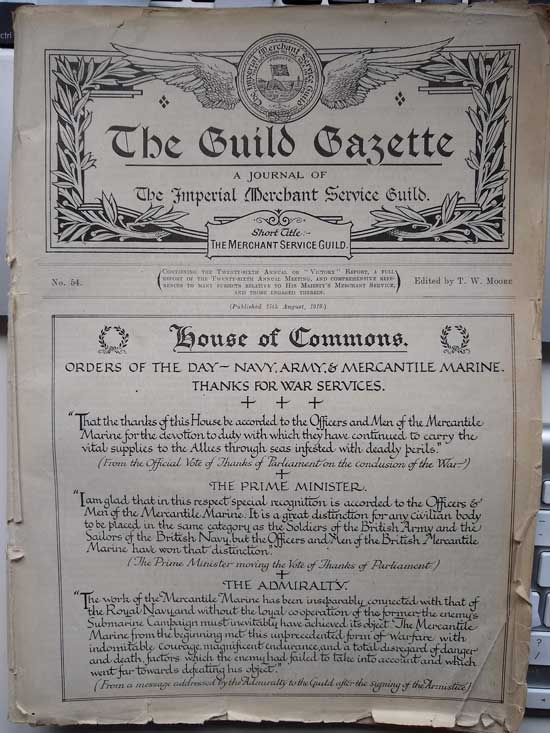 ctrl
The Imperial Merchant Service Guild
The Guild Gazette
A JOURNAL OF
The Imperial Merchant Service Guild.
Short Title:-
THE MERCHANT SERVICE GUILD.
No. 54.
CONTAINING THE TWENTY-SIXTH ANNUAL OR "VICTORY" REPORT, A FULL
REPORT OF THE TWENTY-SIXTH ANNUAL MEETING, AND COMPREHENSIVE REFE-
RENCES TO MANY SUBJECTS RELATIVE TO HIS MAJESTY'S MERCHANT SERVICE,
AND THOSE ENGAGED THEREIN.
Edited by T. W. MOORE
(Published 15th August, 1919.)
House of Commons.
ORDERS OF THE DAY— NAVY, ARMY, & MERCANTILE MARINE.
THANKS FOR WAR SERVICES.
"That the thanks of this House be accorded to the Officers and Men of the Mercantile
Marine for the devotion to duty with which they have continued to carry the
vital supplies to the Allies through seas infested with deadly perils."
(From the Official Vote of Thanks of Parliament on the conclusion of the War—)
THE PRIME MINISTER.
"I am glad that in this respect special recognition is accorded to the Officers &
Men of the Mercantile Marine. It is a great distinction for any civilian body
to be placed in the same category as the Soldiers of the British Army and the
Sailors of the British Navy, but the Officers and Men of the British Mercantile
Marine have won that distinction."
(The Prime Minister moving the Vote of Thanks of Parliament.)
THE ADMIRALTY.
"The work of the Mercantile Marine has been inseparably connected with that of
the Royal Navy, and without the loyal co-operation of the former, the enemy's
Submarine Campaign must inevitably have achieved its object. The Mercantile
Marine from the beginning met this unprecedented form of Warfare with
indomitable courage, magnificent endurance, and a total disregard of danger
and death, factors which the enemy had failed to take into account and which
went far towards defeating his object."
(From a message addressed by the Admiralty to the Guild after the signing of the Armistice)